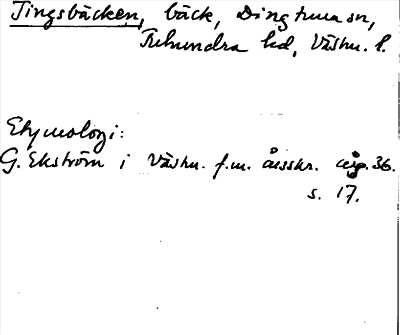 Tingsbäcken, bäck, Dingtuna sn,
Tuhundra hd, Västm. l.
Etymologi:
G. Ekström i Västm. f.m. årsskr. årg. 36.
s. 17.